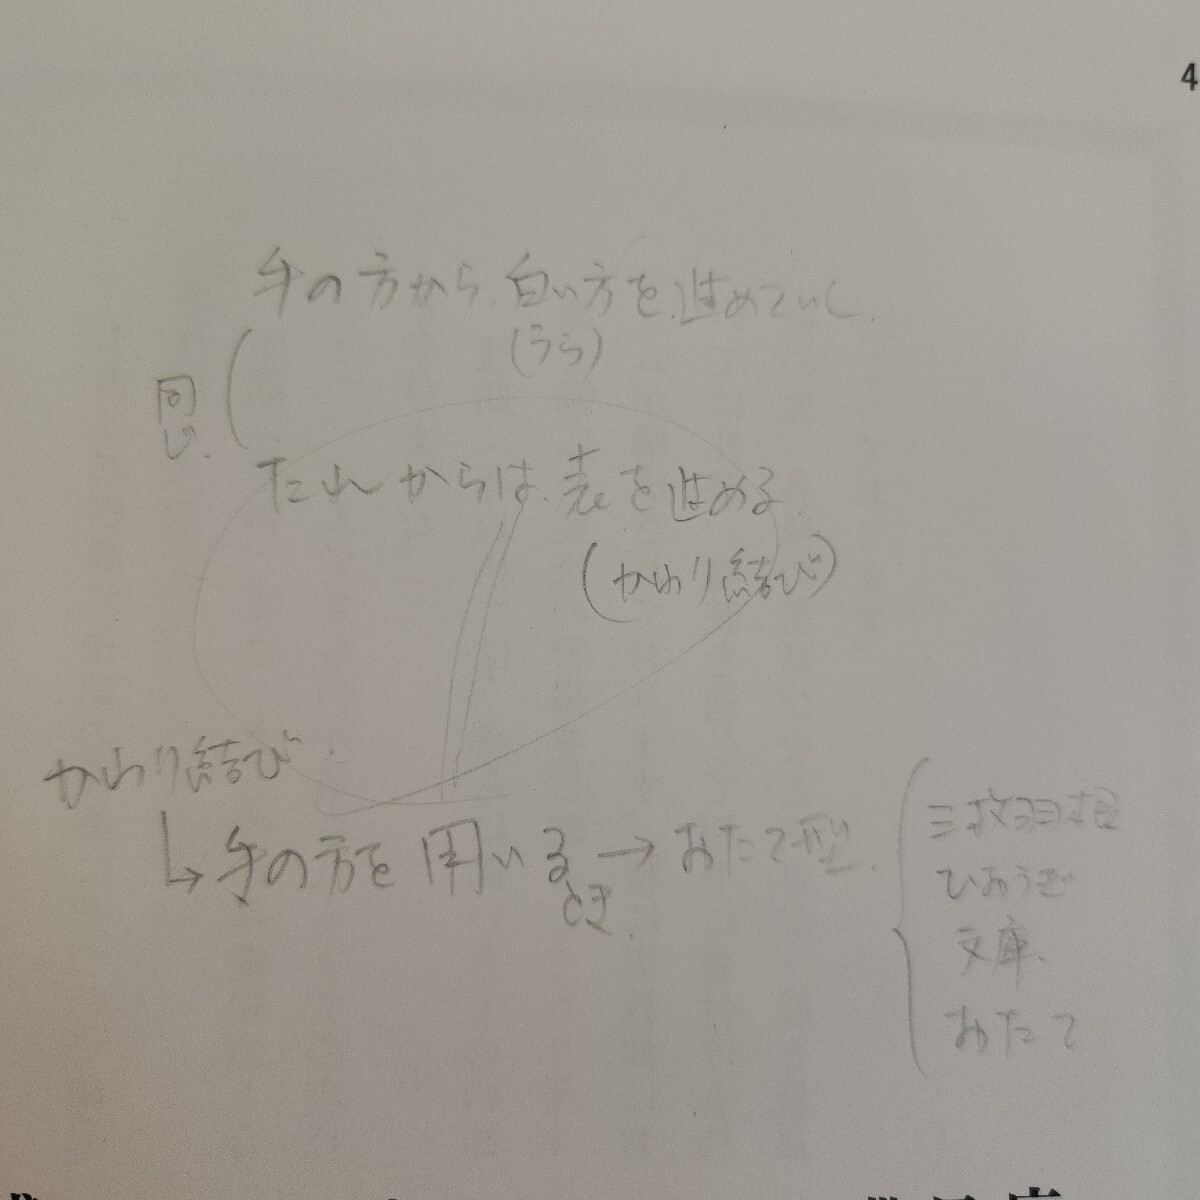 4
手の方から、白い方を進めていく。
(うら)
同じ。
たれからは、表を進める。
(かわり結び)
かわり結び
↳手の方を用いるとき。→おたて型。
ひおうぎ
文庫、
おたて